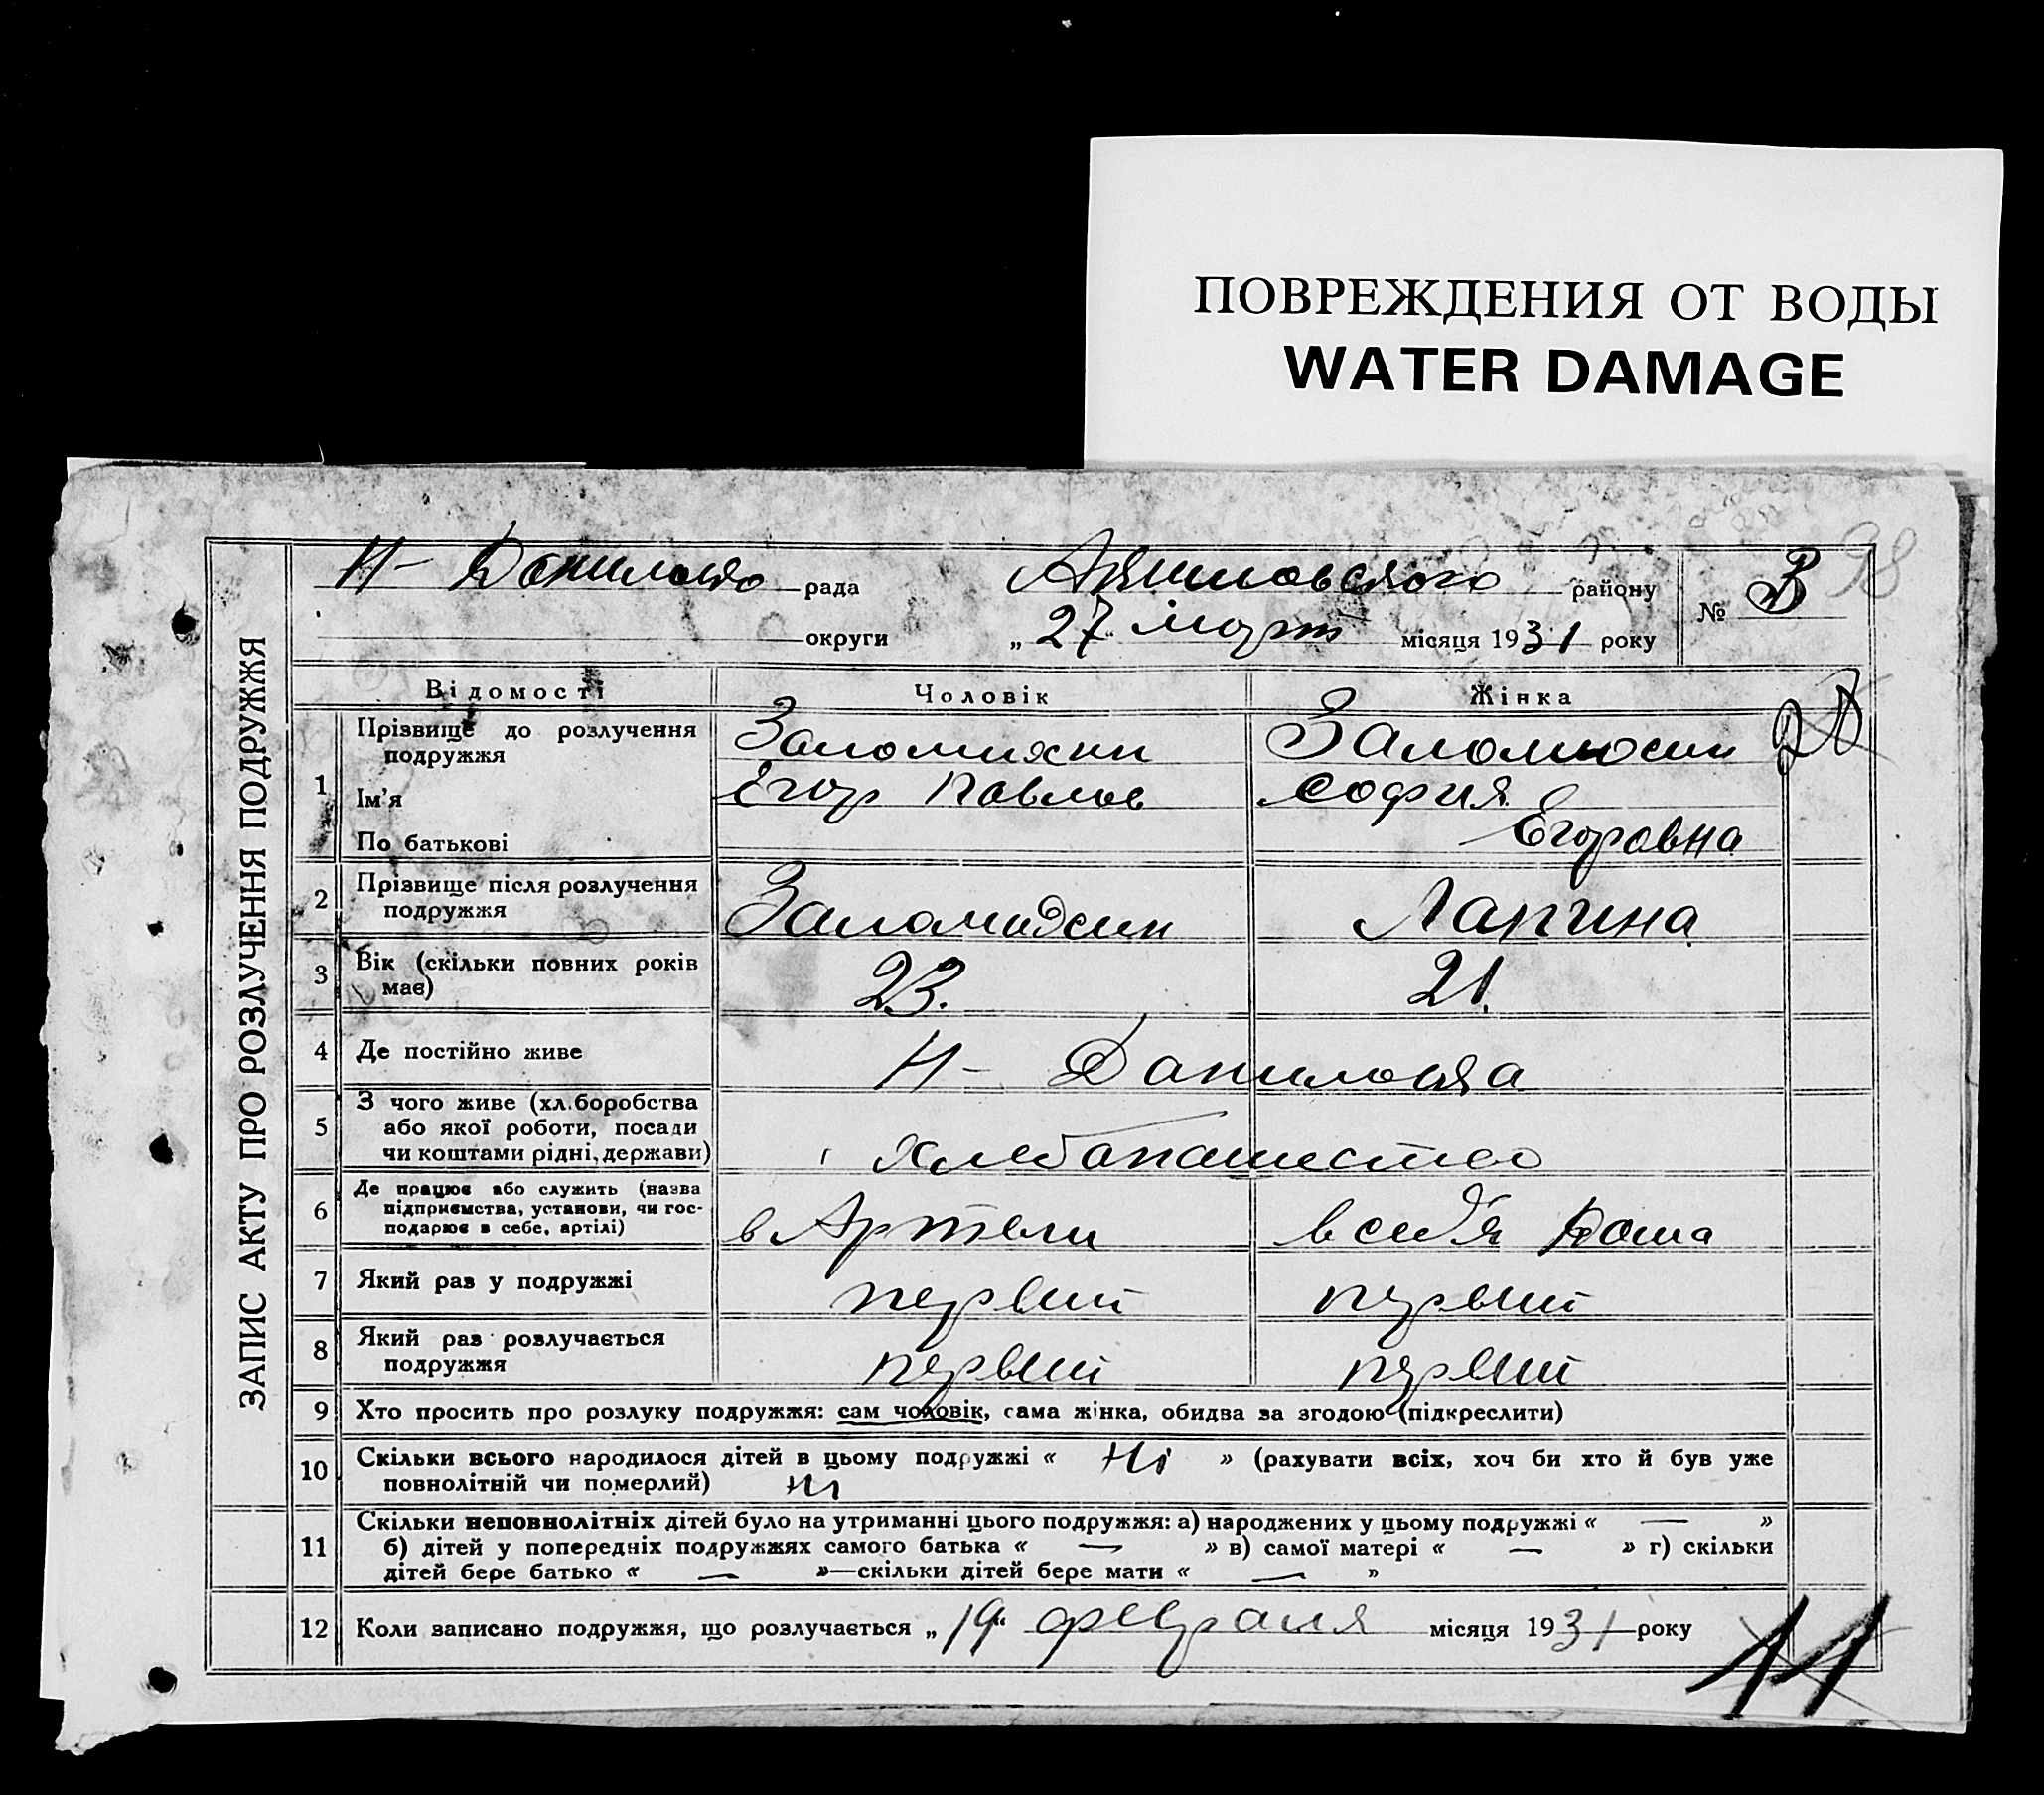 ПОВРЕЖДЕНИЯ ОТ ВОДЫ
WATER DAMAGE
98
ЗАПИС АКТУ ПРО РОЗЛУЧЕННЯ ПОДРУЖЖЯ
Н- рада району № 3
округи „27“ март місяця 1931 року
Відомості Чоловік Жінка
1 Прізвище до розлучення подружжя
Ім'я Егор Павлов София
По батькові Егоровна
2 Прізвище після розлучення
подружжя Лапина
3 Вік (скільки повних років
має) 23. 21.
4 Де постійно живе Н- Даниловка
5 З чого живе (хл.боробства
або якої роботи, посади
чи коштами рідні, держави) хлебопашество
6 Де працює або служить (назва
підприємства, установи, чи гос-
подарює в себе, артілі) в Артели в себя дома
7 Який раз у подружжі первый первый
8 Який раз розлучається
подружжя первый первый
9 Хто просить про розлуку подружжя: сам чоловік, сама жінка, обидва за згодою (підкреслити)
10 Скільки всього народилося дітей в цьому подружжі « Ні » (рахувати всіх, хоч би хто й був уже
повнолітній чи померлий) ні
11 Скільки неповнолітніх дітей було на утриманні цього подружжя: а) народжених у цьому подружжі « — »
б) дітей у попередніх подружжях самого батька « — » в) самої матері « — » г) скільки
дітей бере батько « — »—скільки дітей бере мати « — »
12 Коли записано подружжя, що розлучається „19“ февраля місяця 1931 року
11